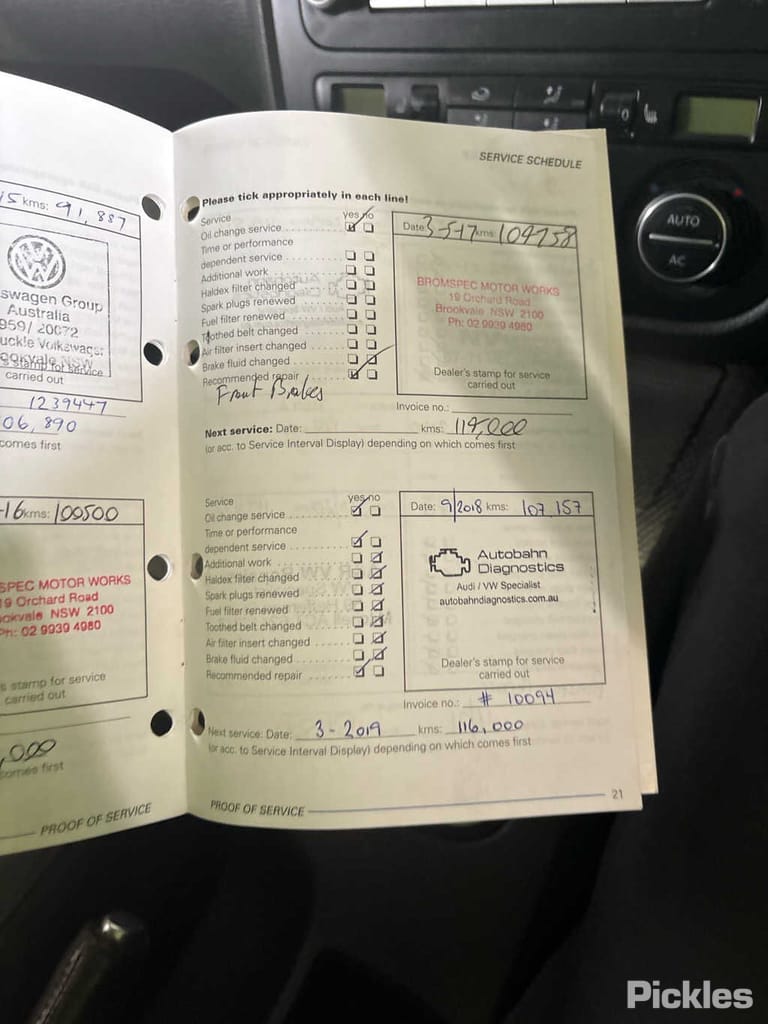 SERVICE SCHEDULE
kms: 91,887
Volkswagen Group
Australia
959/ 20072
Buckle Volkswagen
Brookvale NSW
stamp for service
carried out
1239447
comes first
-16 kms: 100500
SPEC MOTOR WORKS
19 Orchard Road
Brookvale NSW 2100
Ph: 02 9939 4980
s stamp for service
carried out
comes first
PROOF OF SERVICE
Please tick appropriately in each line!
Service yes no
Oil change service
Time or performance
dependent service
Additional work
Haldex filter changed
Spark plugs renewed
Fuel filter renewed
Toothed belt changed
Air filter insert changed
Brake fluid changed
Recommended repair
Front Brakes
Date: 3-5-17 kms: 104758
BROMSPEC MOTOR WORKS
19 Orchard Road
Brookvale NSW 2100
Ph: 02 9939 4980
Dealer's stamp for service
carried out
Invoice no.:
Next service: Date: kms: 119,000
(or acc. to Service Interval Display) depending on which comes first
Service yes no
Oil change service
Time or performance
dependent service
Additional work
Haldex filter changed
Spark plugs renewed
Fuel filter renewed
Toothed belt changed
Air filter insert changed
Brake fluid changed
Recommended repair
Date: 9/2018 kms: 107,157
Autobahn
Diagnostics
Audi / VW Specialist
autobahndiagnostics.com.au
Dealer's stamp for service
carried out
Invoice no.: # 10094
Next service: Date: 3-2019 kms: 116,000
(or acc. to Service Interval Display) depending on which comes first
PROOF OF SERVICE
21
AUTO
AC
Pickles